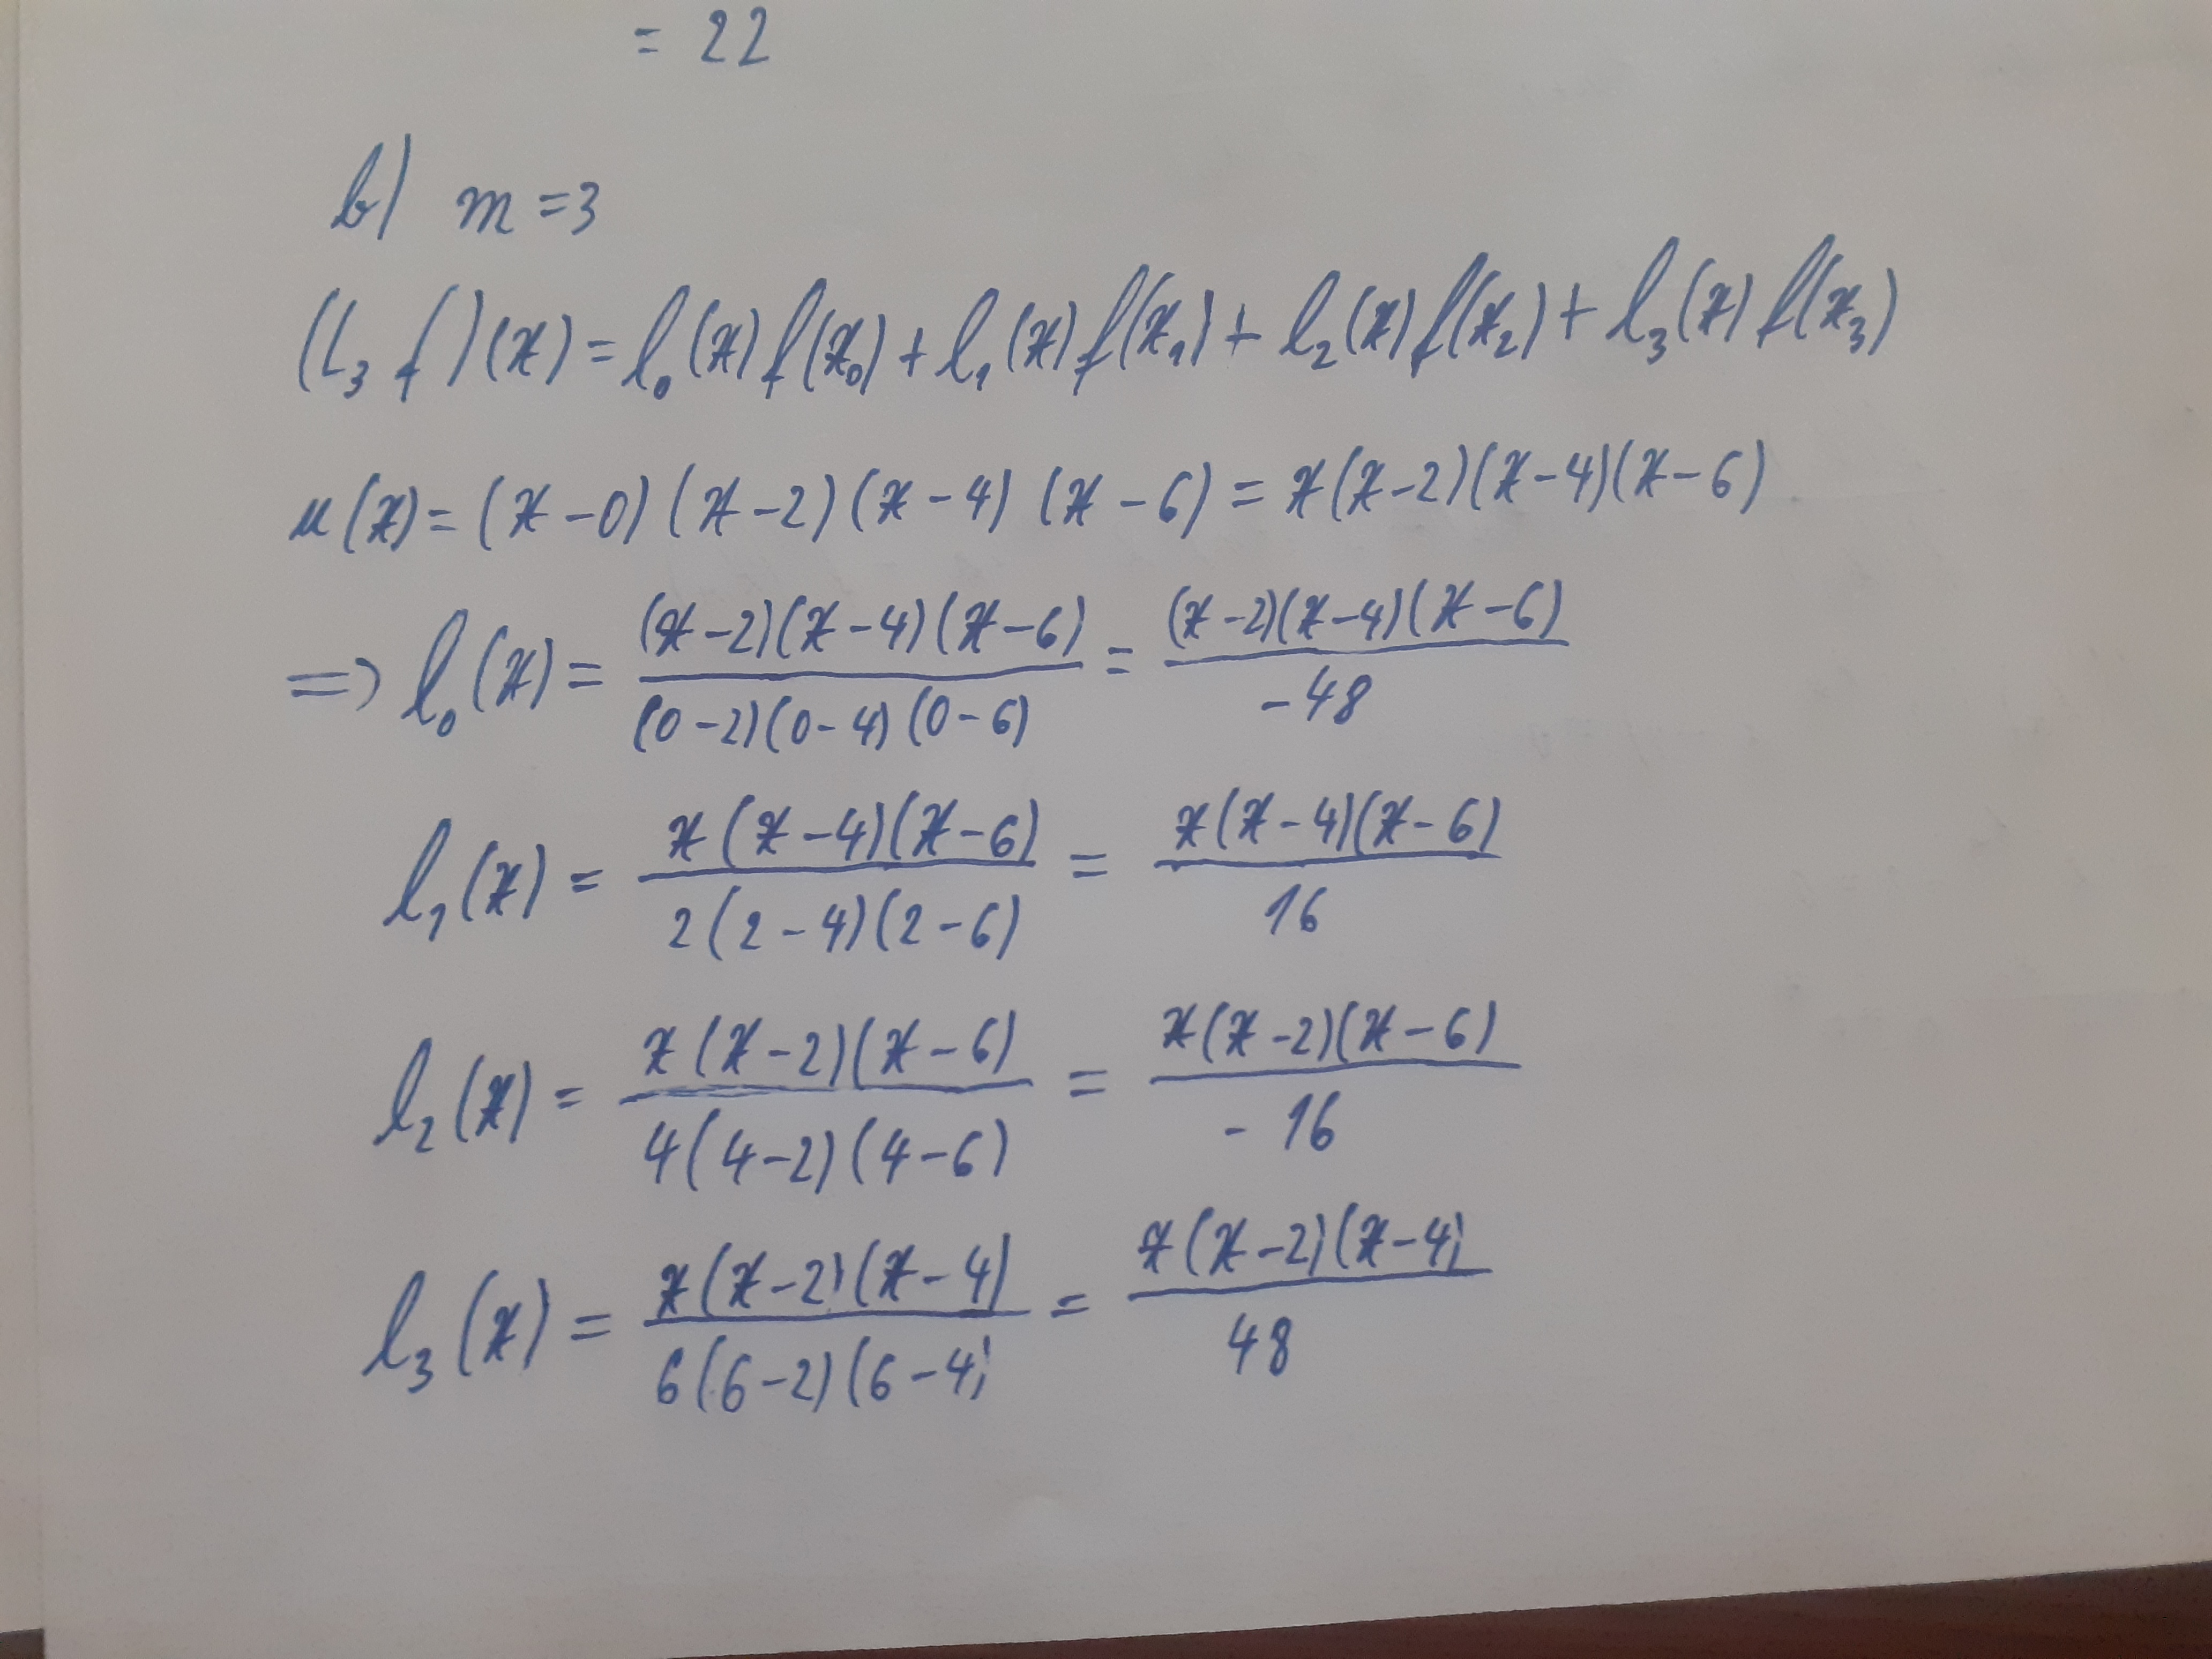 = 22
b) m = 3
(L₃ f)(x) = l₀(x) f(x₀) + l₁(x) f(x₁) + l₂(x) f(x₂) + l₃(x) f(x₃)
u(x) = (x - 0)(x - 2)(x - 4)(x - 6) = x(x - 2)(x - 4)(x - 6)
=> l₀(x) = (x - 2)(x - 4)(x - 6) / (0 - 2)(0 - 4)(0 - 6) = (x - 2)(x - 4)(x - 6) / -48
l₁(x) = x(x - 4)(x - 6) / 2(2 - 4)(2 - 6) = x(x - 4)(x - 6) / 16
l₂(x) = x(x - 2)(x - 6) / 4(4 - 2)(4 - 6) = x(x - 2)(x - 6) / -16
l₃(x) = x(x - 2)(x - 4) / 6(6 - 2)(6 - 4) = x(x - 2)(x - 4) / 48